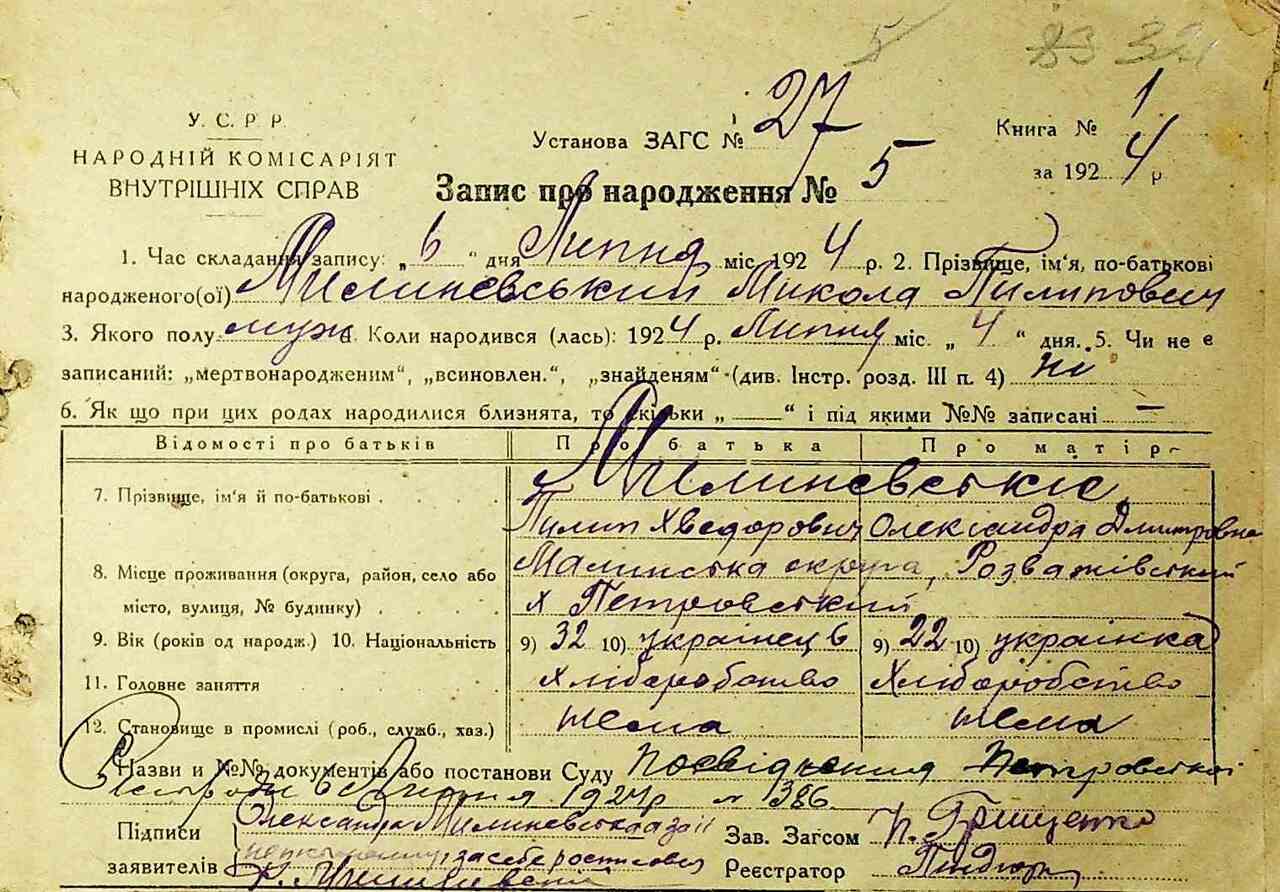 5 83 32
У. С. Р. Р.
НАРОДНІЙ КОМІСАРІЯТ
ВНУТРІШНІХ СПРАВ
Установа ЗАГС № 27
Книга № 1
за 1924 р
Запис про народження № 5
1. Час складання запису: „6“ дня Липня міс. 1924 р. 2. Прізвище, ім'я, по-батькові
народженого(ої) Милиневський Микола Пилипович
3. Якого полу муж. Коли народився (лась): 1924 р. Липня міс. „4“ дня. 5. Чи не є
записаний: „мертвонародженим“, „всиновлен.“, „знайденям“ (див. Інстр. розд. III п. 4) ні
6. Як що при цих родах народилися близнята, то скільки „ — “ і під якими №№ записані —
Відомості про батьків Про батька Про матір
7. Прізвище, ім'я й по-батькові Милиневські
Пилип Хведорович Олександра Дмитровна
8. Місце проживання (округа, район, село або Малинська округа, Розважівський
місто, вулиця, № будинку) х Петровський
9. Вік (років од народж.) 10. Національність 9) 32 10) українець 9) 22 10) українка
11. Головне заняття Хліборобство Хліборобство
12. Становище в промислі (роб., служб., хаз.)
Назви и №№ документів або постанови Суду Посвідчения Петровської
6 Липня 1924р № 386
Підписи Олександра Милиневська а за її
Зав. Загсом П. Грищенко
заявителів неписьменну, за себе росписався
Реєстратор